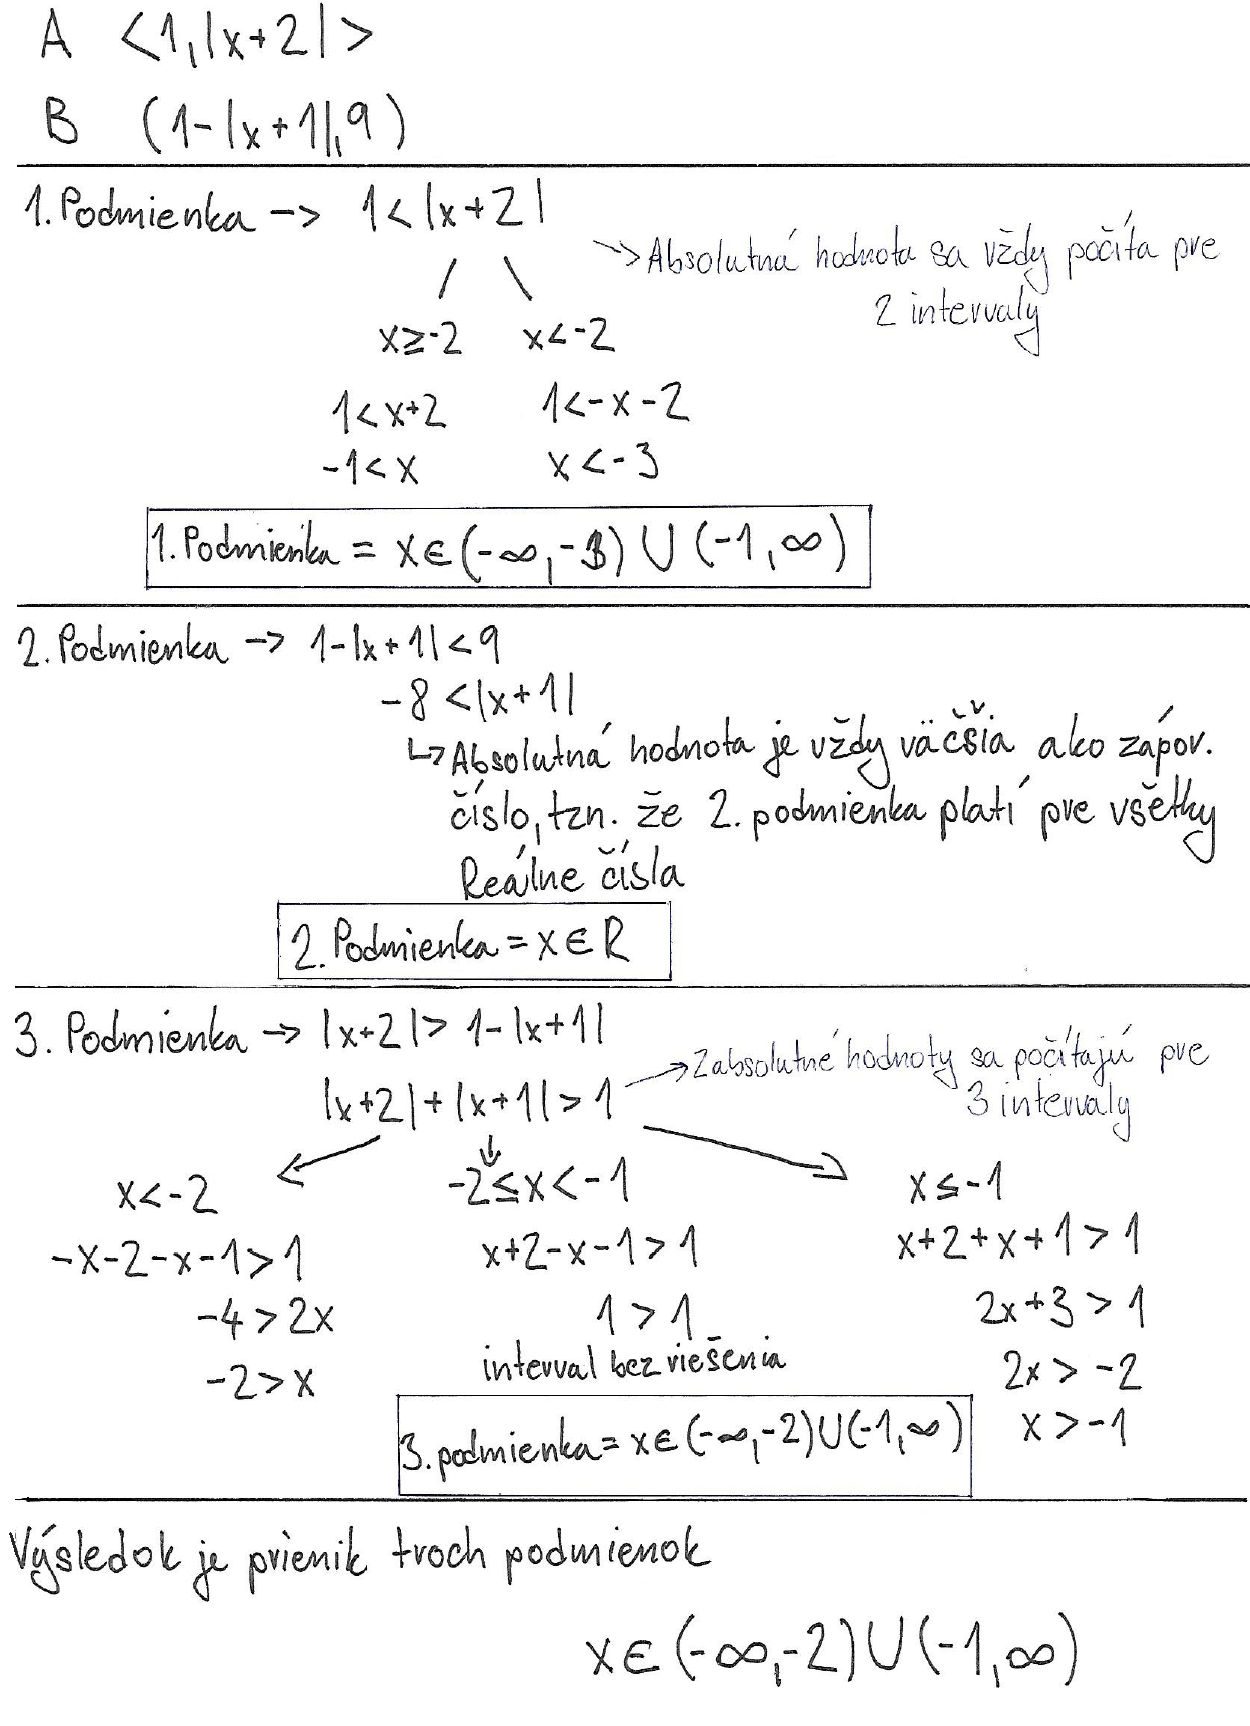 A <1,|x+2|>
B (1-|x+1|,9)
1. Podmienka -> 1<|x+2|
-> Absolutná hodnota sa vždy počíta pre
2 intervaly
x≥-2 x<-2
1<x+2 1<-x-2
-1<x x<-3
1. Podmienka = x∈(-∞,-3)∪(-1,∞)
2. Podmienka -> 1-|x+1|<9
-8<|x+1|
↳ Absolutná hodnota je vždy väčšia ako zápor.
číslo, tzn. že 2. podmienka platí pre všetky
Reálne čísla
2. Podmienka = x∈R
3. Podmienka -> |x+2|> 1-|x+1|
|x+2|+|x+1|>1
-> 2absolutné hodnoty sa počítajú pre
3 intervaly
x<-2 -2≤x<-1 x≤-1
-x-2-x-1>1 x+2-x-1>1 x+2+x+1>1
-4>2x 1>1 2x+3>1
-2>x interval bez riešenia 2x>-2
x>-1
3. podmienka = x∈(-∞,-2)∪(-1,∞)
Výsledok je prienik troch podmienok
x∈(-∞,-2)∪(-1,∞)